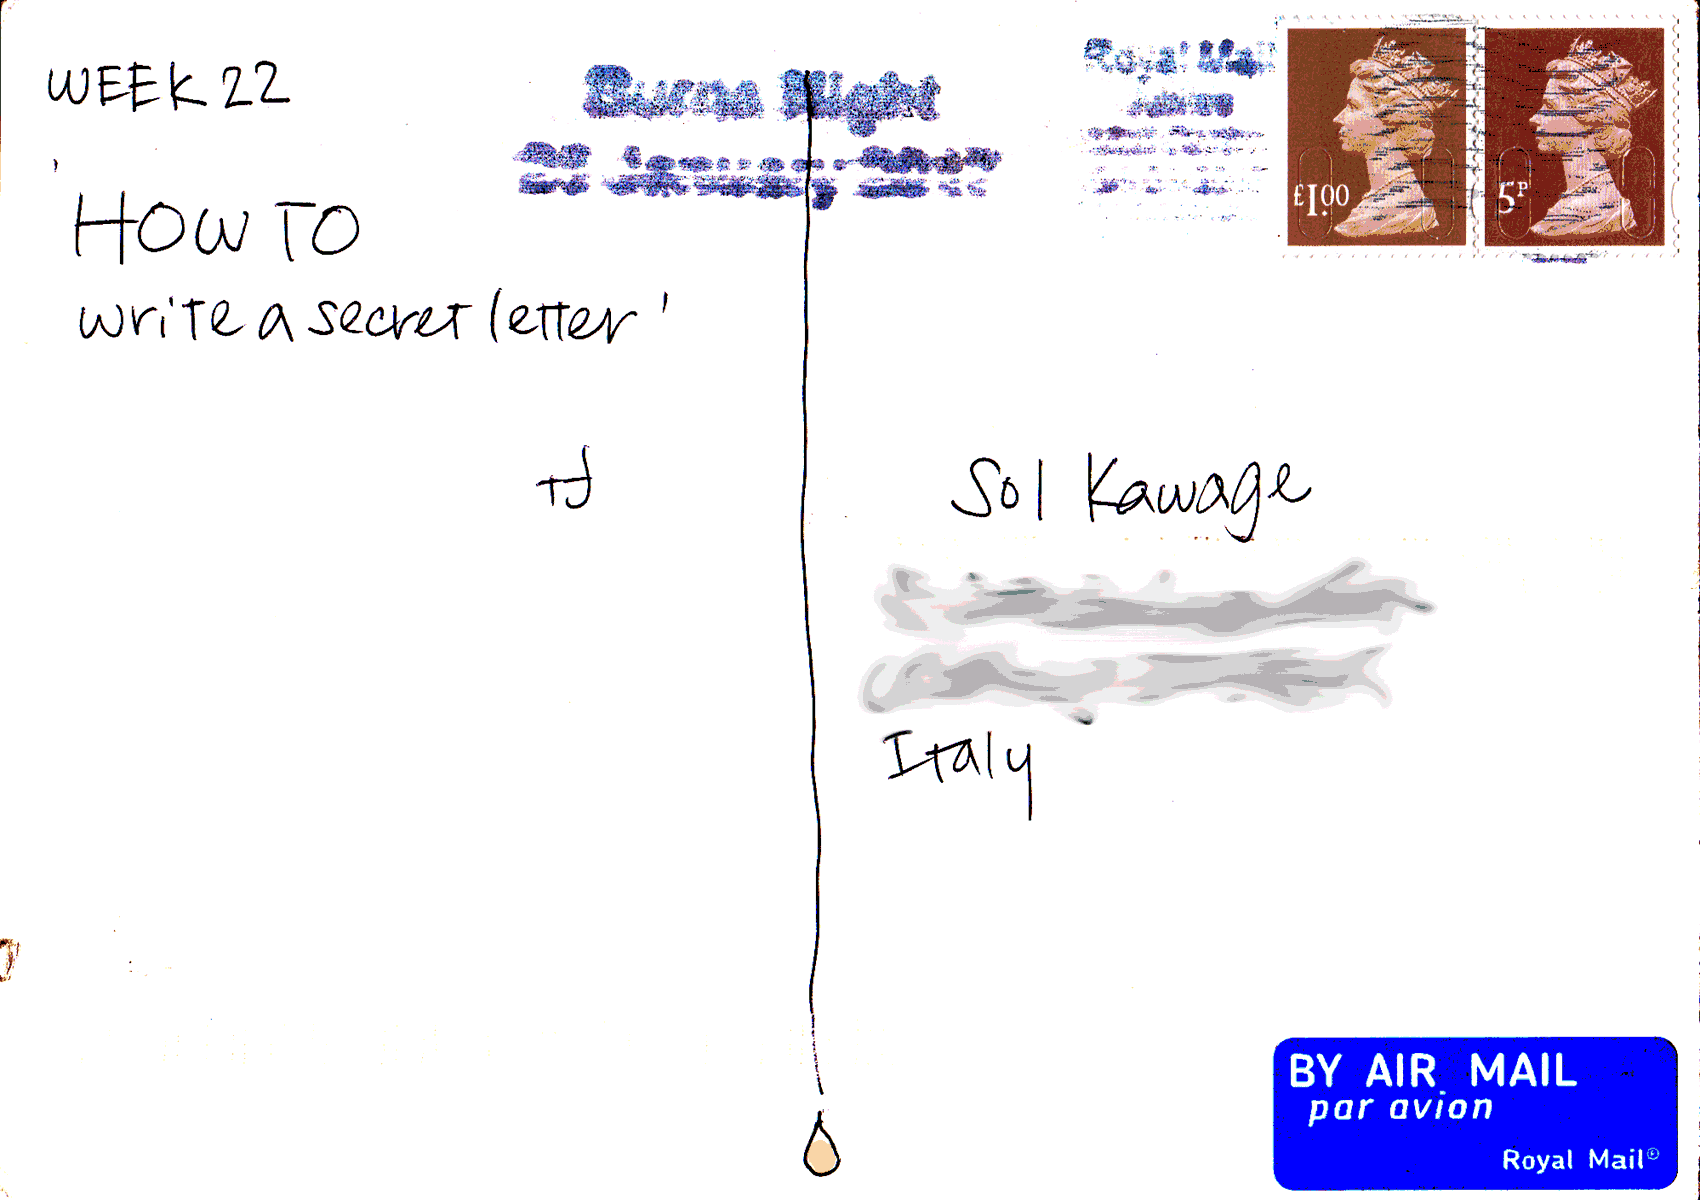 WEEK 22
'HOW TO
write a secret letter'
TJ
Burns Night
25 January 2017
Royal Mail
£1.00
5P
Sol Kawage
Italy
BY AIR MAIL
par avion
Royal Mail©